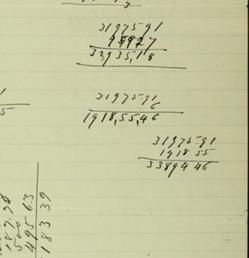 3197591
95927
3293518
3197591
6
1918,55,46
3197591
1918 55
3389446
5
187.78
500
495 63
183 39